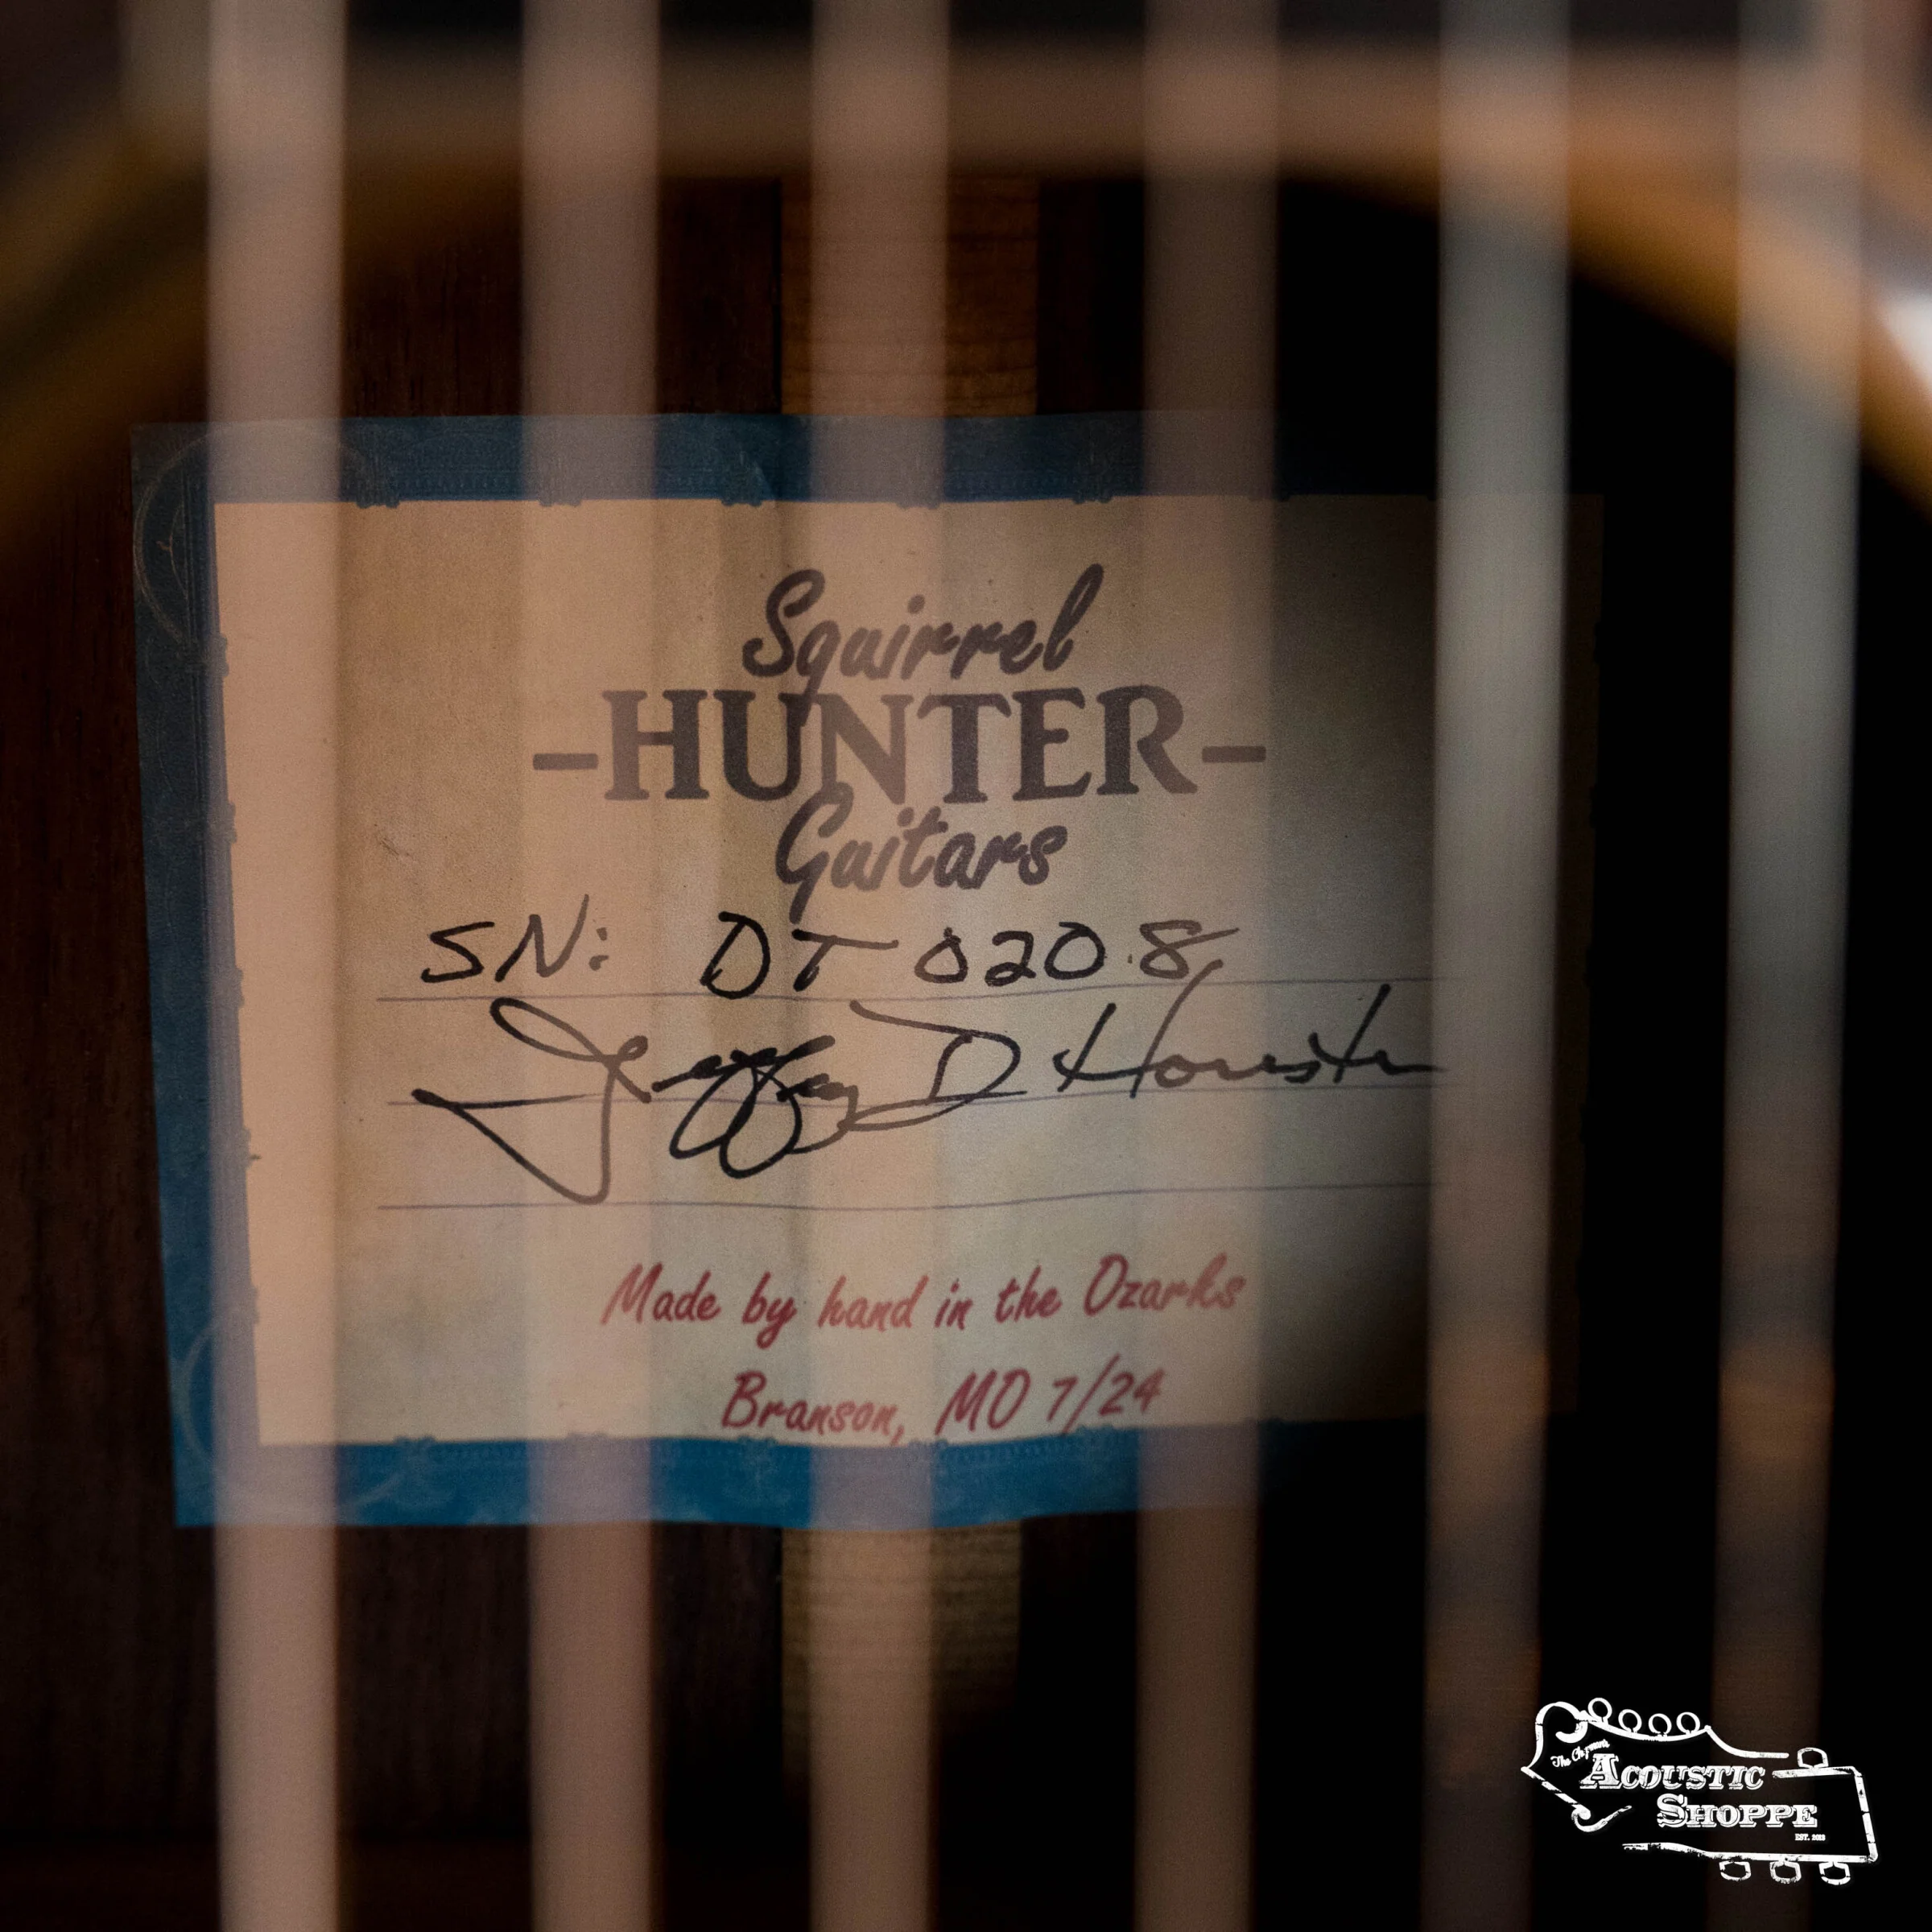 Squirrel
-HUNTER-
Guitars
SN: DT 0208
Jeffrey D Houston
Made by hand in the Ozarks
Branson, MO 7/24
The
ACOUSTIC
SHOPPE
EST. 2013